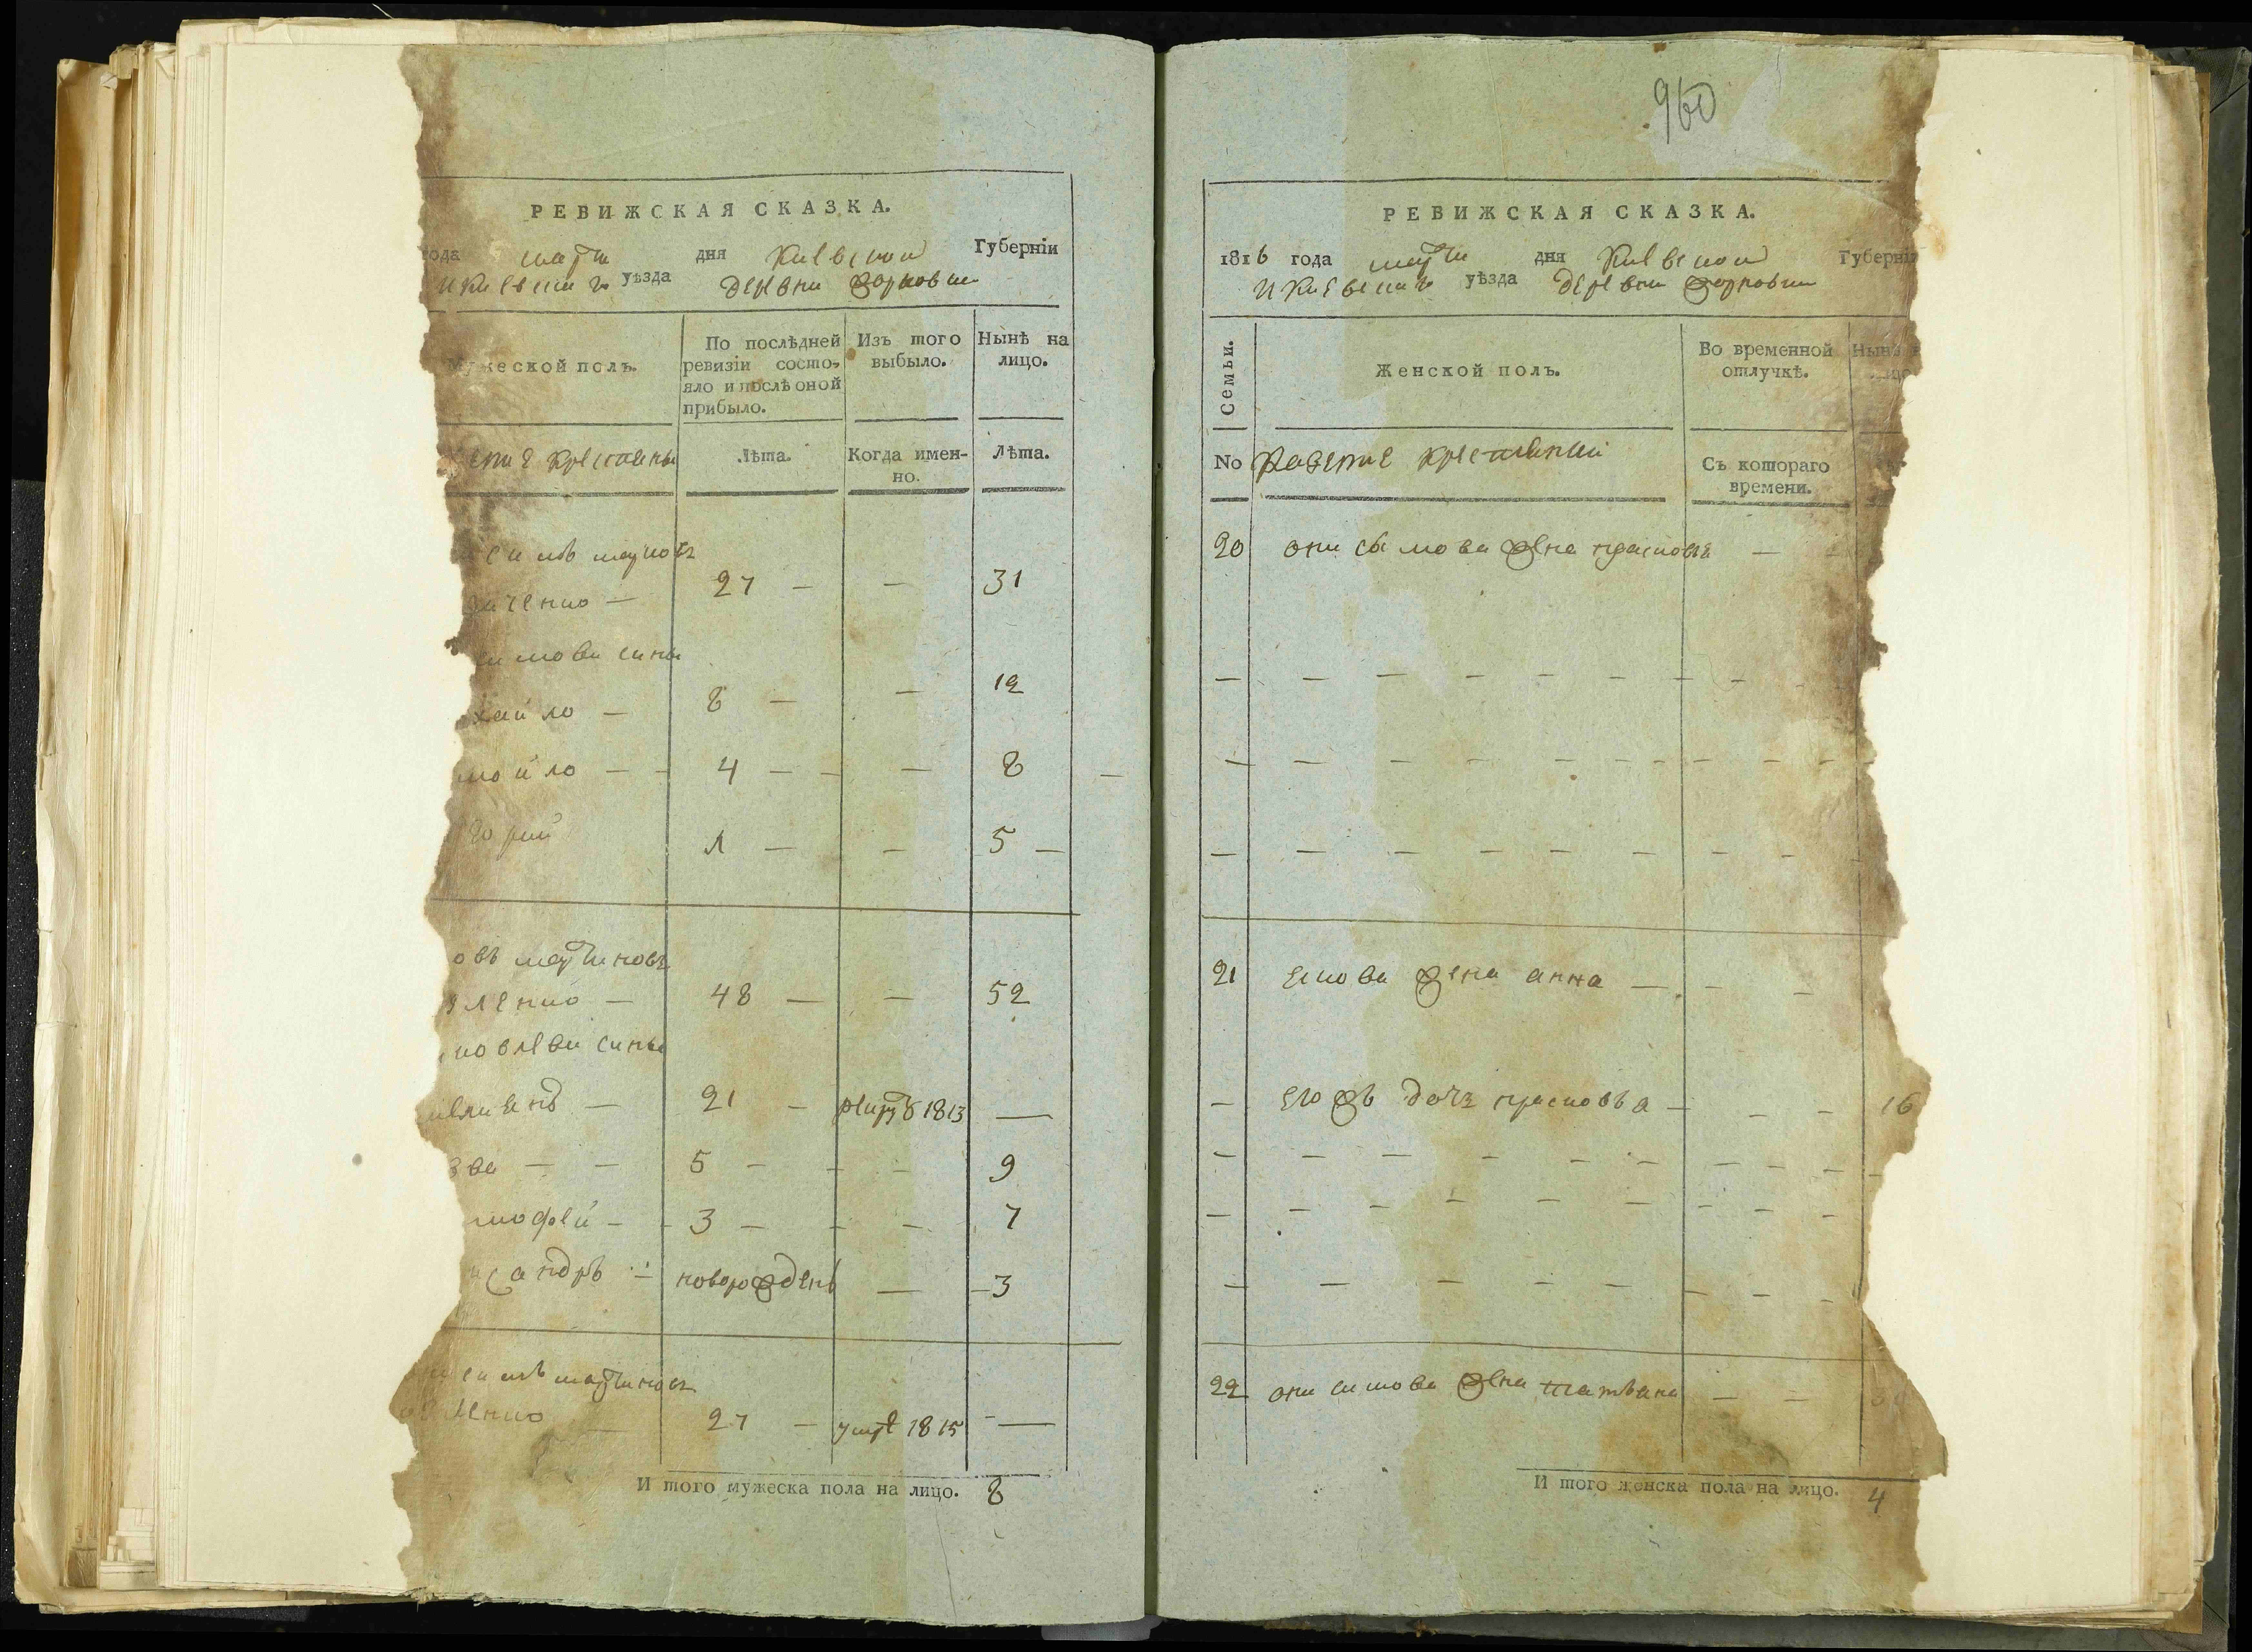 РЕВИЖСКАЯ СКАЗКА.
года марта дня Киевской Губерніи
и Киевскаго уѣзда деревни Жорновки
Мужеской полъ.
По послѣдней ревизіи состо-
яло и послѣ оной
прибыло.
Изъ того
выбыло.
Нынѣ на
лицо.
крестяны
Лѣта.
Когда имен-
но.
Лѣта.
симъ марковъ
ченко — 27 — — 31
симови сины
хайло — 8 — — 12
мойло — — 4 — — — 8 —
горий 1 — — 5 —
овъ мартиновъ
зленко — 48 — — 52
ковлеви сины
21 — рекрутъ 1813 —
зва — — 5 — — — 9
мофей — 3 — — — 7
сандръ — новорожденъ — 3
симъ мартиновъ
ленко 27 — умре 1815 —
И того мужеска пола на лицо. 8
960
РЕВИЖСКАЯ СКАЗКА.
1816 года марта дня Киевской Губерніи
и Киевскаго уѣзда деревни Жорновки
Семьи.
Женской полъ.
Во временной
отлучкѣ.
Нынѣ
лицо
No Казенние крестянки
Съ котораго
времени.
20 онисимова жена прасковя —
— — — — — — — —
— — — — — — — —
— — — — — — — —
21 якова жена анна — — —
— его жъ дочъ прасковъа — — — 16
— — — — — — — — —
— — — — — — — — —
— — — — — — — —
22 онисимова жена татъяна — —
И того женска пола на лицо. 4